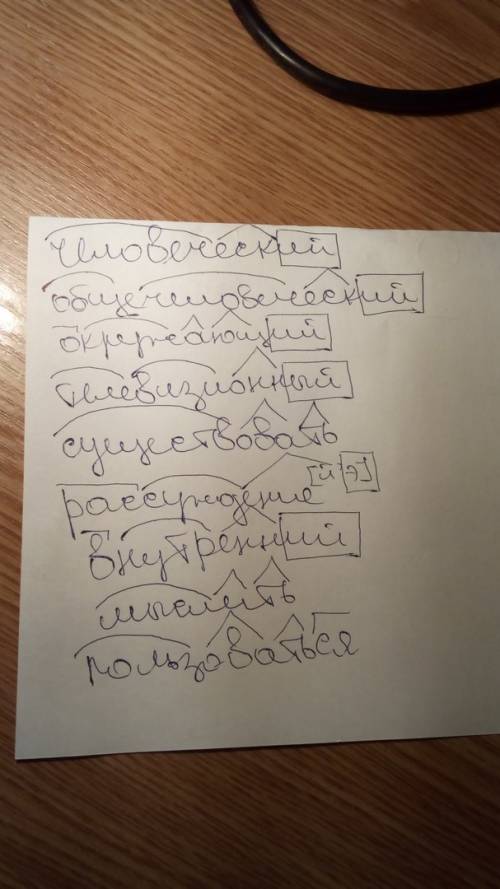 человеческий
общечеловеческий
окружающий
телевизионный
существовать
рассуждение [й'э]
внутренний
мыслить
пользоваться